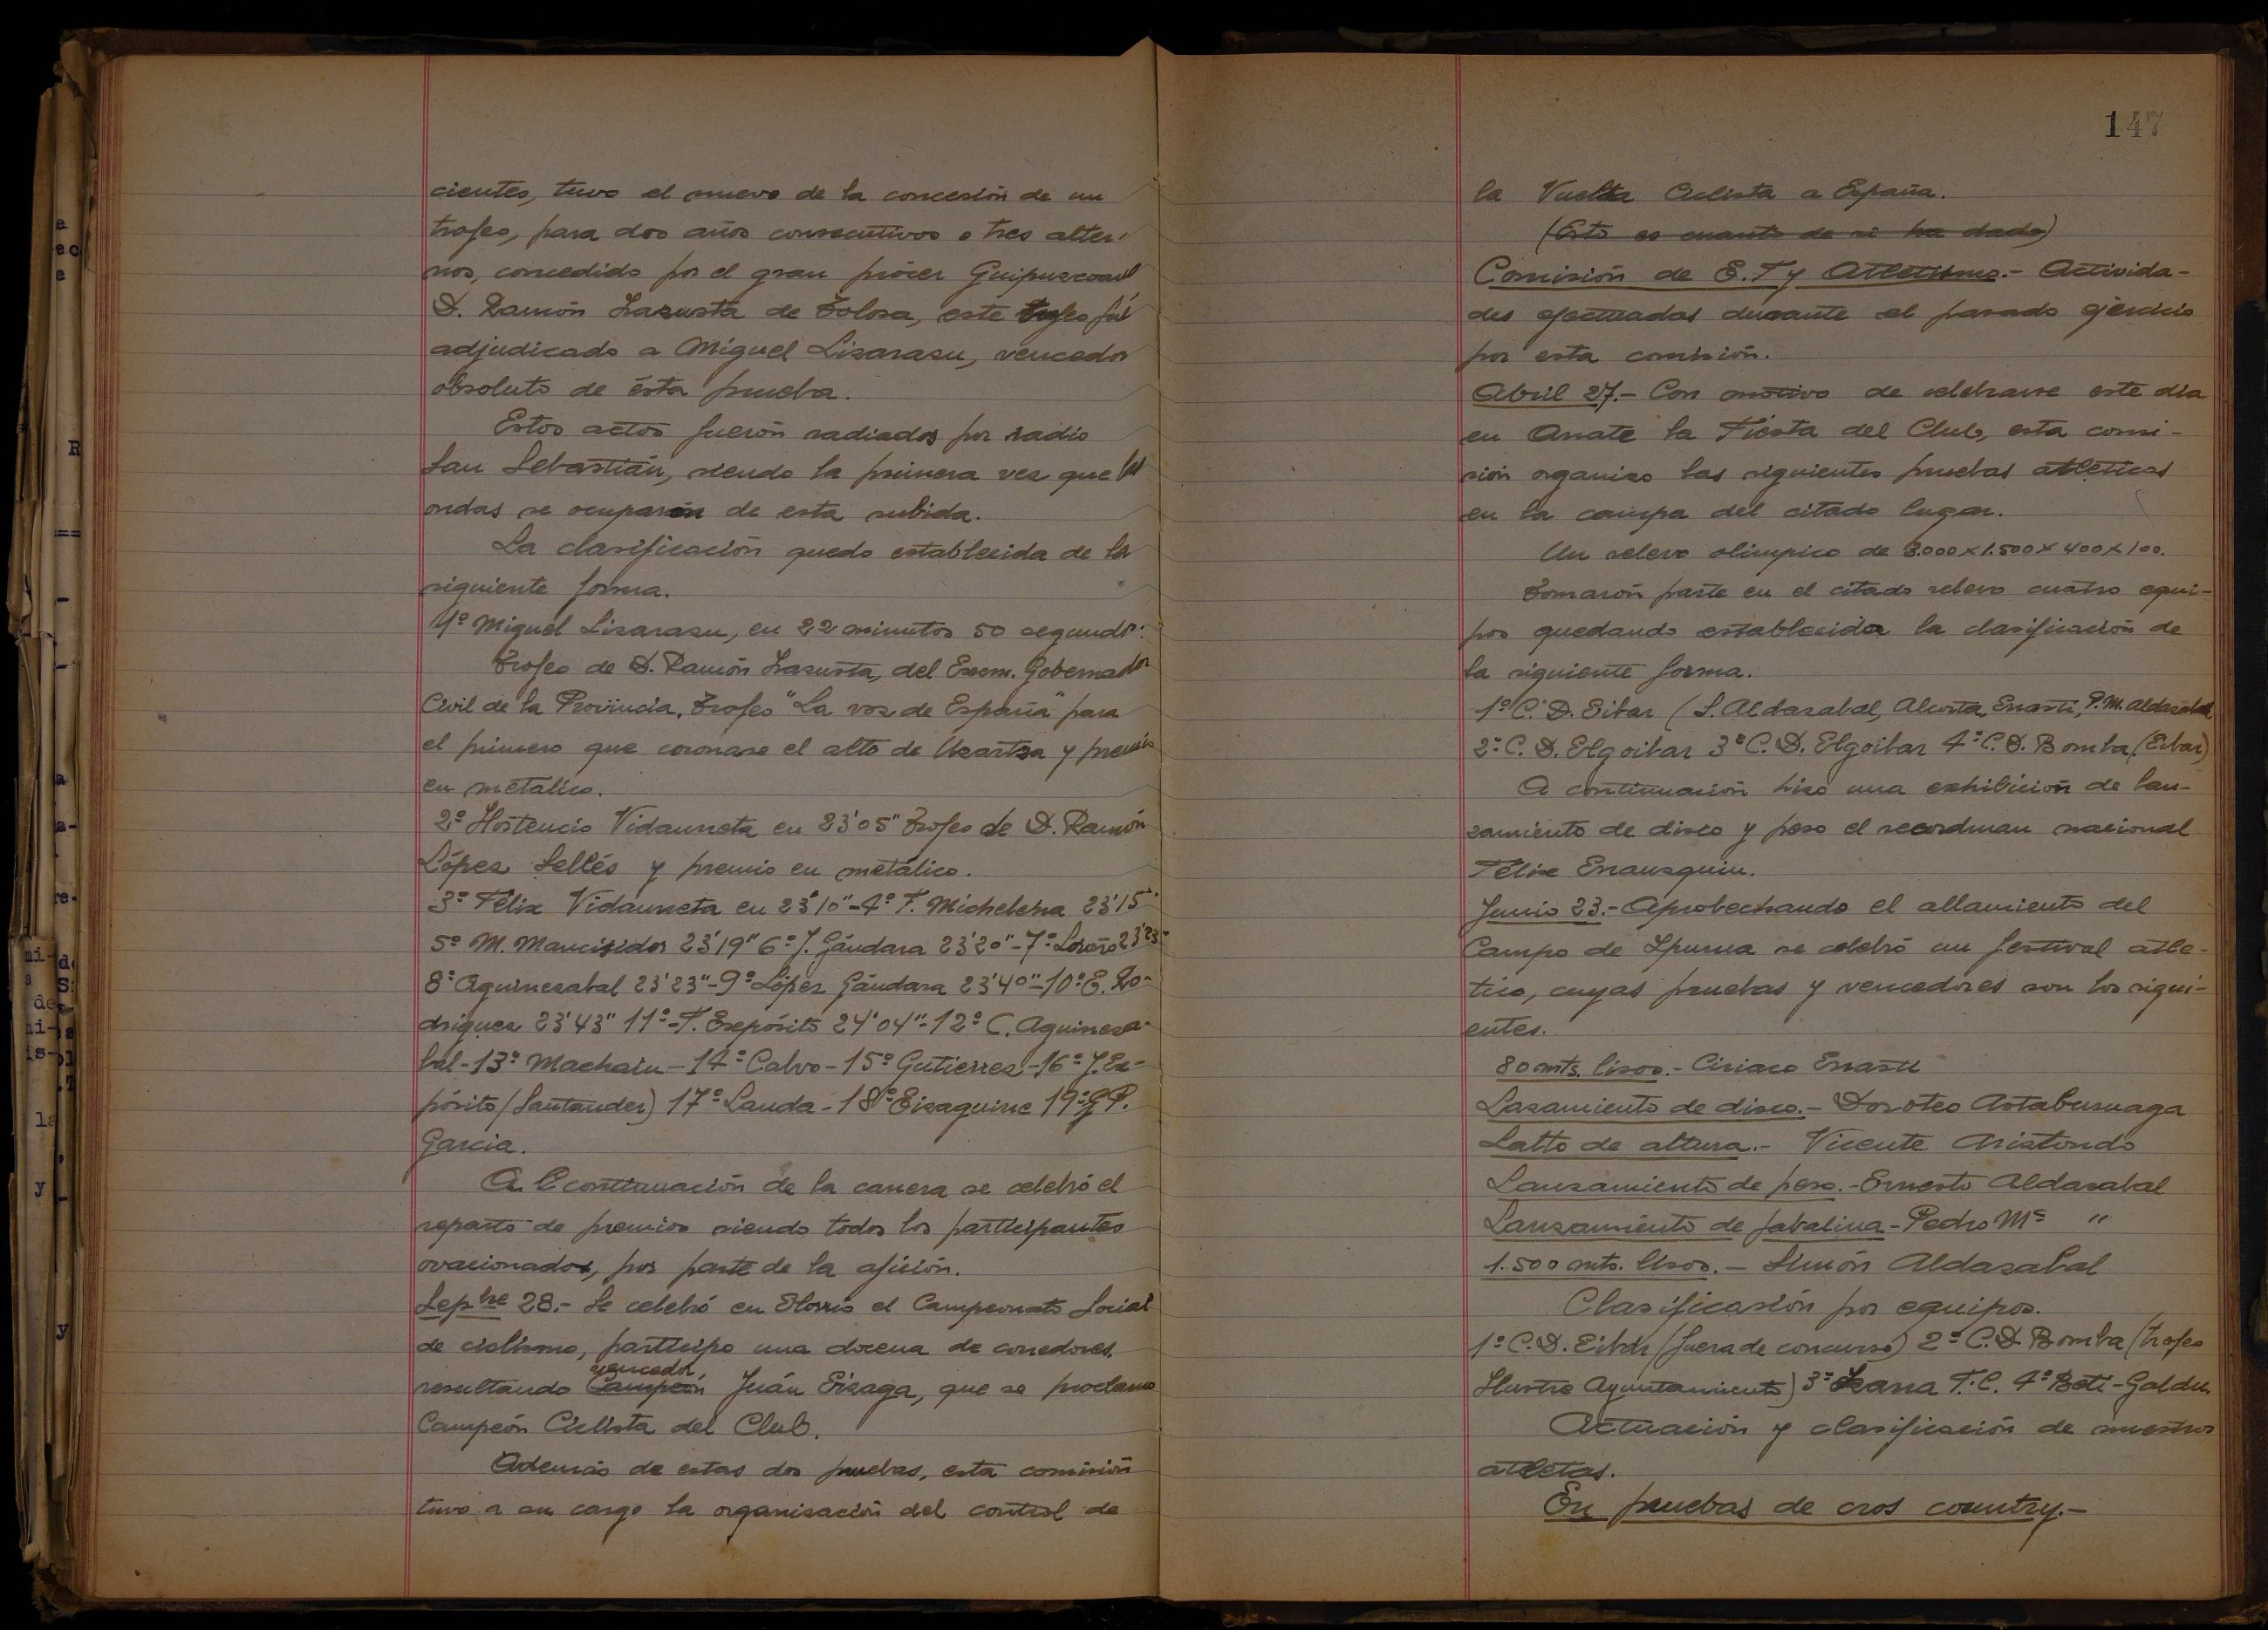 cientes, tuvo el nuevo de la concesión de un
trofeo, para dos años consecutivos o tres alter-
nos, concedido por el gran prócer Guipuzcoano
D. Ramón Lazusta de Tolosa, este trofeo fué
adjudicado a Miguel Lizarazu, vencedor
absoluto de ésta prueba.
Estos actos fuerón radiados por radio
San Sebastián, siendo la primera vez que las
ondas se ocuparón de esta subida.
La clasificación quedo establecida de la
siguiente forma.
1º Miguel Lizarazu, en 22 minutos 50 segundos.
Trofeo de D. Ramón Lazusta, del Excm. Gobernador
Civil de la Provincia, Trofeo "La voz de España" para
el primero que coronase el alto de Uzartza y premio
en metálico.
2º Hortencio Vidaurreta en 23'05" Trofeo de D. Ramón
López Sellés y premio en metálico.
3º Félix Vidaurreta en 23'10"-4º F. Michelena 23'15"
5º M. Mancisidor 23'19" 6º J. Gándara 23'20"-7º Loroño 23'23"
8º Aguirrezabal 23'23"-9º López Gándara 23'40"-10º E. Ro-
driguez 23'43" 11º-F. Expósito 24'04"-12º C. Aguirreza-
bal-13º Machain-14º Calvo-15º Gutierrez-16º J. Ex-
pósito (Santander) 17º Landa-18º Eizaguirre 19º G.P.
Garcia.
A continuación de la carrera se celebró el
reparto de premios siendo todos los participantes
ovacionados, por parte de la afición.
Sepbre 28.- Se celebró en Elorrio el Campeonato Social
de ciclismo, participo una docena de corredores,
vencedor
resultando Campeón Juán Eizaga, que se proclamo
Campeón Ciclista del Club.
Además de estas dos pruebas, esta comisión
tuvo a su cargo la organización del control de
147
la Vuelta Ciclista a España.
(Esto es cuanto de si ha dado)
Comisión de E. T y Atletismo.- Activida-
des efectuadas durante el pasado ejercicio
por esta comisión.
Abril 27.- Con motivo de celebrarse este día
en Arrate la Fiesta del Club, esta comi-
sión organizo las siguientes pruebas atléticas
en la campa del citado lugar.
Un relevo olimpico de 3.000 x 1.500 x 400 x 100.
Tomarón parte en el citado relevo cuatro equi-
pos quedando establecida la clasificación de
la siguiente forma.
1º C. D. Eibar (S. Aldazabal, Alcorta, Errasti, P.M. Aldazabal
2º C. D. Elgoibar 3º C. D. Elgoibar 4º C. D. Bomba (Eibar)
A continuación hizo una exhibición de lan-
zamiento de disco y peso el recordman nacional
Félix Erausquin.
Junio 23.- Aprobechando el allamiento del
Campo de Ipurua se celebró un festival atle-
tico, cuyas pruebas y vencedores son los sigui-
entes.
80 mts. lisos.- Ciriaco Errasti
Lazamiento de disco.- Doroteo Astaburuaga
Salto de altura.- Vicente Aristondo
Lanzamiento de peso.- Ernesto Aldazabal
Lanzamiento de jabalina- Pedro Mª "
1.500 mts. lisos.- Simón Aldazabal
Clasificasión por equipos.
1º C. D. Eibar (fuera de concurso) 2º C. D. Bomba (trofeo
Ilustre Ayuntamiento) 3º F.C. 4º Beti-Galdu.
Actuación y clasificasión de nuestros
atletas.
En pruebas de cros country.-